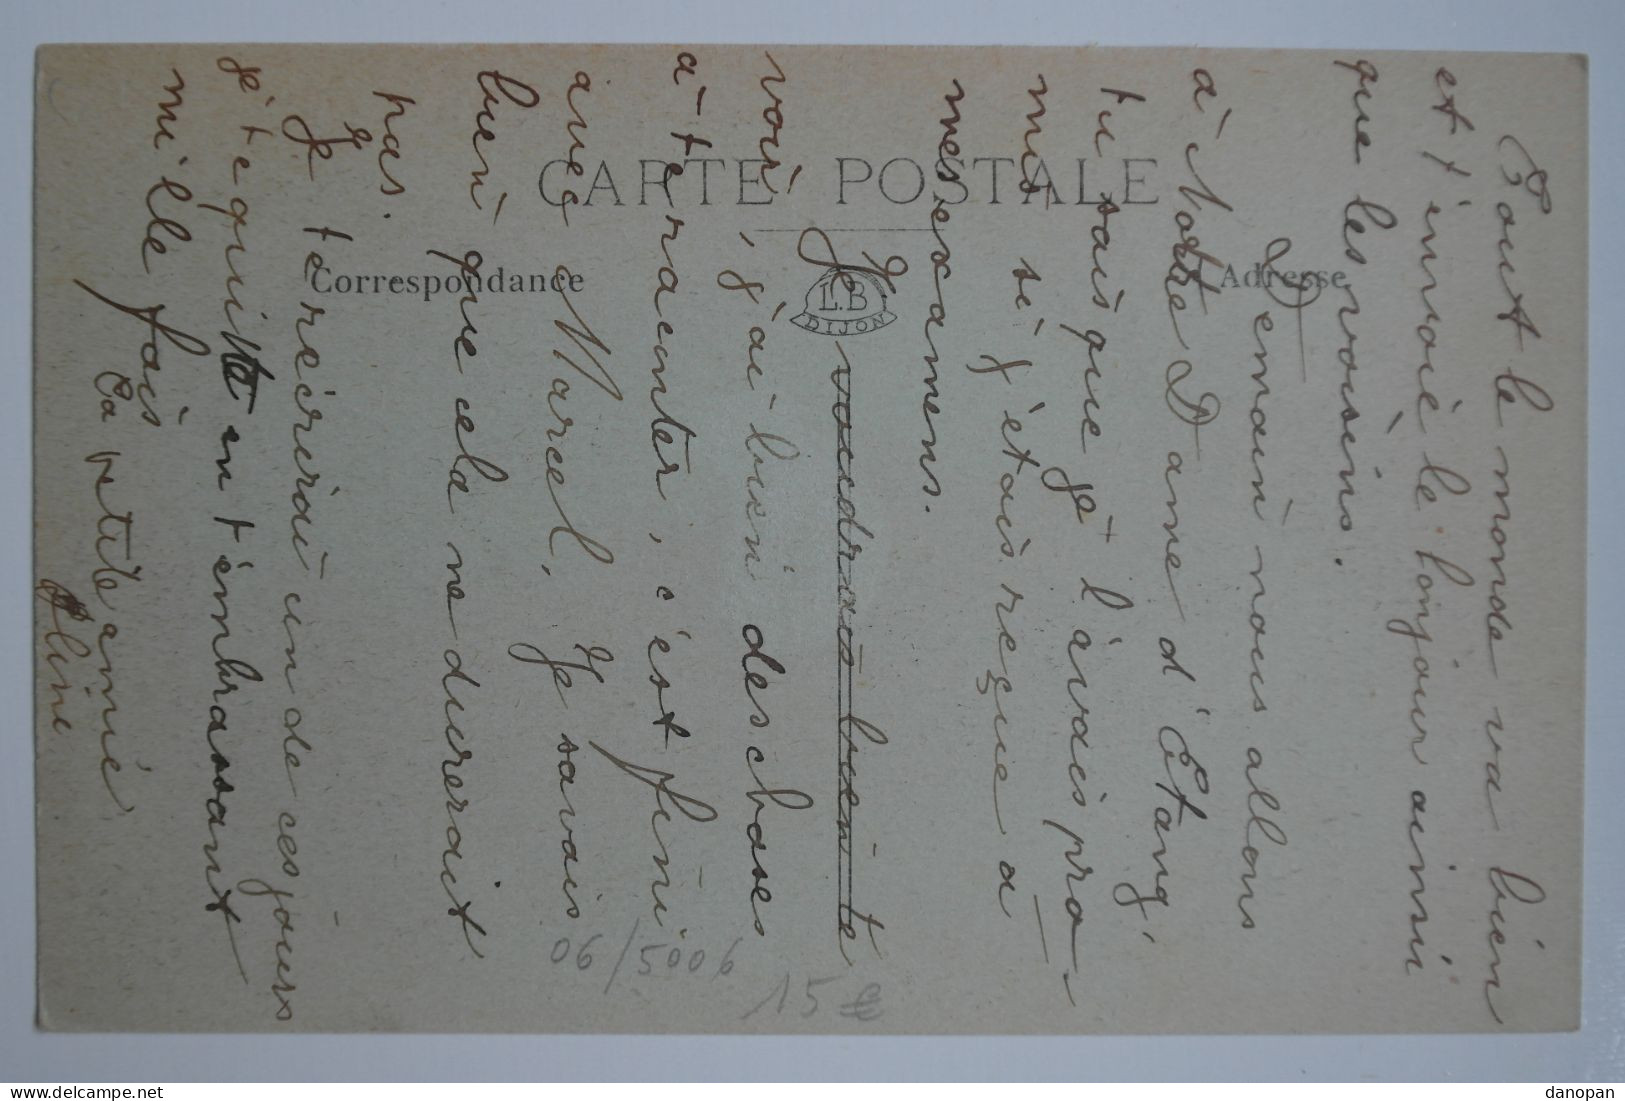 Tout le monde va bien
et t'invoie le bonjour ainsi
que les voisins.
Demain nous allons
à Notre Dame d'Étang
tu sais que je l'avais pro-
mis si j'étais reçue à
mes examens.
Je voudrais bien te
voir, j'ai bien des choses
à te racunter, c'est fini
avec Marcel, Je savais
bien que cela ne durerait
pas.
Je te récrirai un de ces jours
je te quitte en t'embrassant
mille fois
Ta petite amie
Aline
CARTE POSTALE
Correspondance
L.B
DIJON
Adresse
06/5006
15 €
danopan